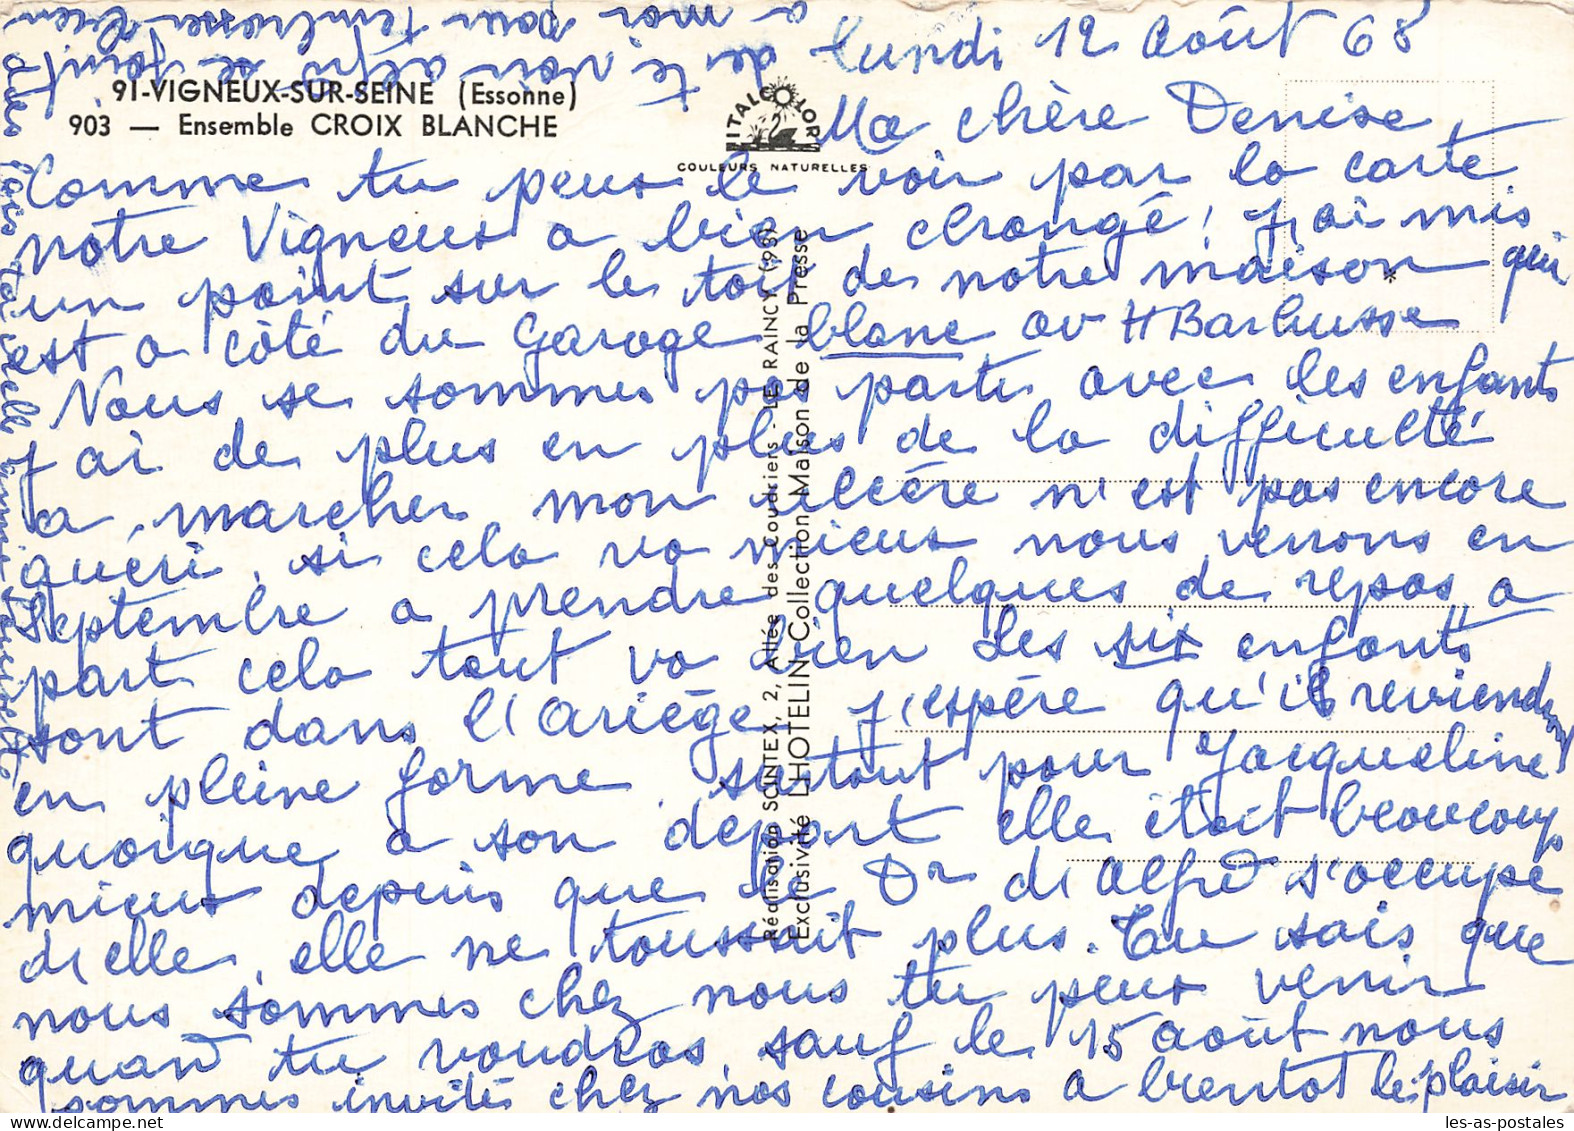 91-VIGNEUX-SUR-SEINE (Essonne)
903 — Ensemble CROIX BLANCHE
ITALCOLOR
COULEURS NATURELLES
Réalisation SOINTEX, 2, Allée des Coudriers - LE RAINCY (93)
Exclusivité L'HOTELIN Collection Maison de la Presse
lundi 12 Août 68
Ma chère Denise,
Comme tu peux le voir par la carte
notre Vigneux a bien changé, j'ai mis
un point sur le toit de notre maison qui
est a côté du garage blanc av H Barbusse
Nous se sommes pas partis avec les enfants
j'ai de plus en plus de la difficulté
a marcher mon ulcére n'est pas encore
guéri, si cela va mieux nous verrons en
septembre a prendre quelques de repos, a
part cela tout va bien Les six enfants
sont dans l'Ariége j'espére qu'ils reviendront
en pleine forme surtout pour Jacqueline
quoique a son depart elle était beaucoup
mieux depuis que le Dr d'Alfred s'occupe
d'elle, elle ne toussait plus. Tu sais que
nous sommes chez nous tu peux venir
quand tu voudras sauf le 15 août nous
sommes invités chez nos cousins a bientot le plaisir
de te voir se joint
a moi pour t'embrasser bien